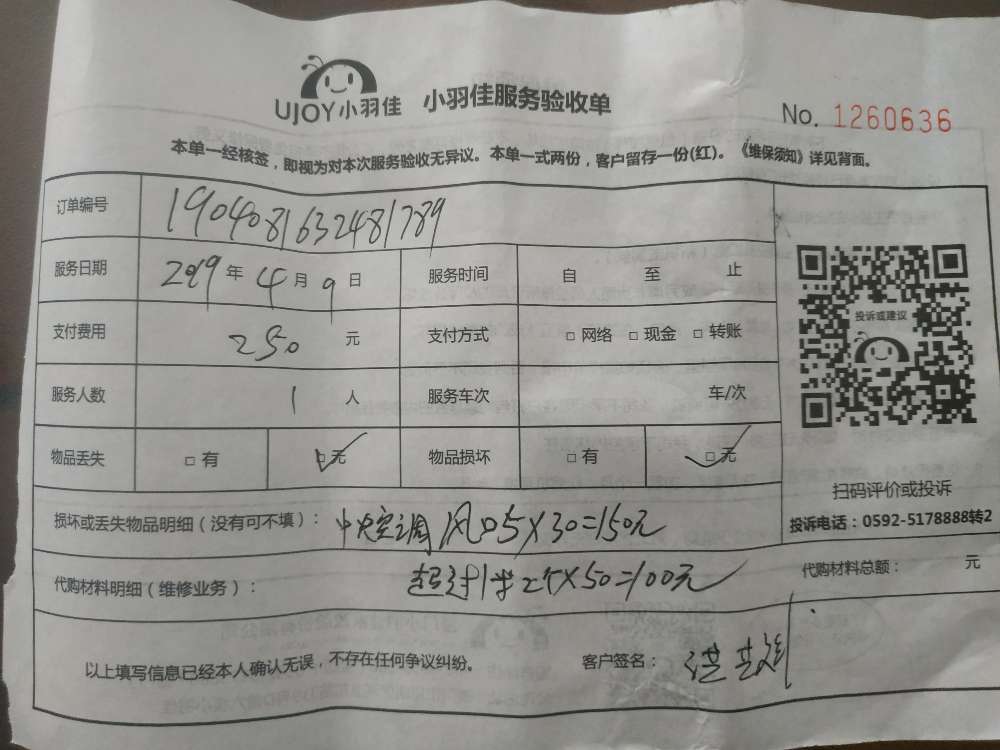 UJOY小羽佳 小羽佳服务验收单
No. 1260636
本单一经核签，即视为对本次服务验收无异议。本单一式两份，客户留存一份(红)。《维保须知》详见背面。
订单编号 1904081632481789
服务日期 2019年4月9日 服务时间 自 至 止
支付费用 250 元 支付方式 □ 网络 □ 现金 □ 转账
服务人数 1 人 服务车次 车/次
物品丢失 □ 有 □ 无 物品损坏 □ 有 □ 无
投诉或建议
扫码评价或投诉
投诉电话：0592-5178888转2
损坏或丢失物品明细（没有可不填）： 中央空调风口5X30=150元
代购材料明细（维修业务）： 2个X50=100元 代购材料总额： 元
以上填写信息已经本人确认无误，不存在任何争议纠纷。 客户签名： 洪